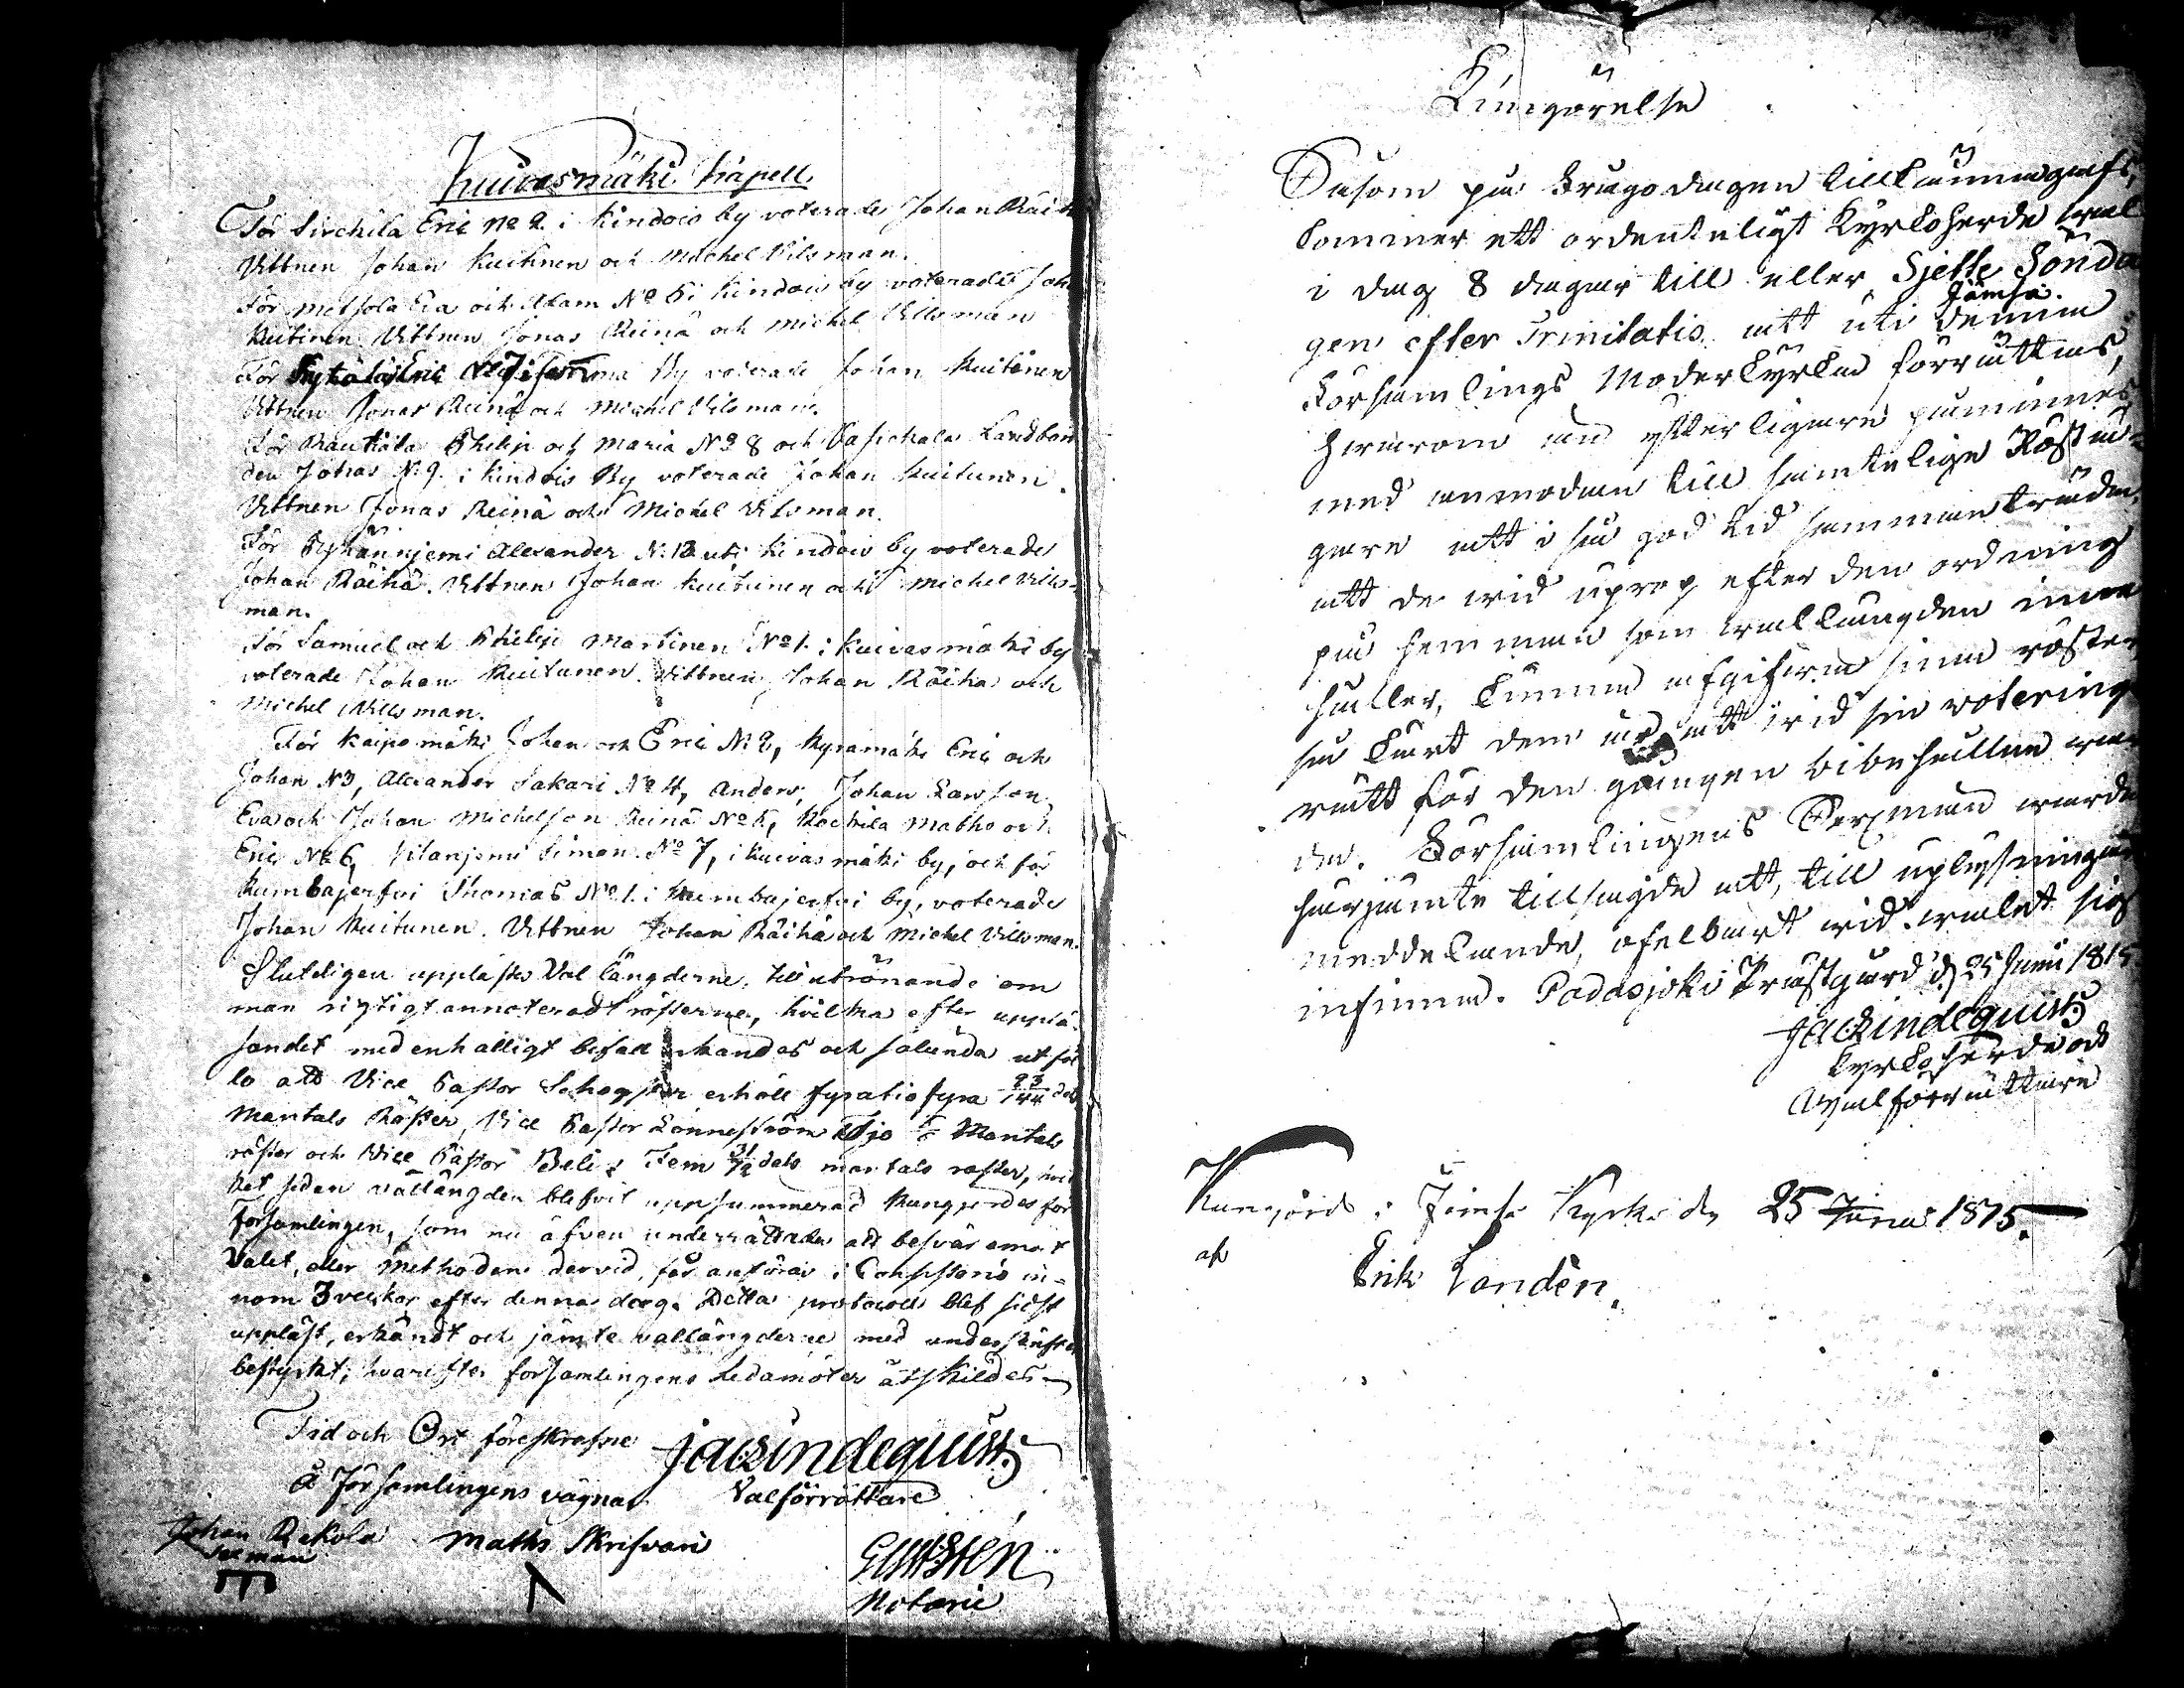 Kuivasmäki Kapell.
För Sirchila Eric No 2. i Kindois by voterade Johan Räihä
Vittnen Johan Kuitunen och Michel Vilsman.
För Metsola Eva och Adam No 5 i Kindois by voterade Joh
Kuitinen Vittnen Jonas Reinä och Michel Villsman
För Eric No 7 i samma By voterade Johan Kuitunen
Vittnen Jonas Reinä och Michel Vilsman.
För Rautiala Philip och Maria No 8 och Pasichala Landbon
den Johas No 9. i Kindois By voterade Johan Kuitunen.
Vittnen Jonas Reinä och Michel Vilsman.
För Pyhänniemi Alexander No 12 uti Kindois by voterade
Johan Räihä. Vittnen Johan Kuitunen och Michel Vills-
man.
För Samuel och Philip Martinen No 1. i Kuivasmäki by
voterade Johan Kuitunen. Vittnen Johan Räihä och
Michel Villsman.
För Kaipomäki Johan och Eric No 2, Kyramäki Eric och
Johan No 3, Alexander Sakari No 4, Anders, Johan Larsson,
Eva och Johan Michelsson Reinä No 5, Rochila Matho och
Eric No 6, Vitaniemi Simon No 7, i Kuivasmäki by, och för
Kumbajerfvi Thomas No 1. i Kumbajerfvi by, voterade
Johan Kuitunen. Vittnen Johan Räihä och Michel Villsman.
Sluteligen upplästes Vallängderne, till utrönande om
man rigtigt annoteradt rösterne, hvilka efter upplä-
sandet medenhälligt befa kandes och salunda utföl
lo att Vice Pastor erhöll fyratiofyra 93/144 dels
Mantals Röster, Vice Pastor Lönneström Tjo Mantals
röster och Vice Pastor Fem 31/72 dels mantals röster, hvil
ket sedan vallängden blefvit uppsummerad kungjordes för
församlingen, som nu äfven underrättades att besvär emot
Valet, eller Methoden dervid, får anföras i Consistorio in-
nom 3 veckor efter denna dag. Detta protocoll blef sidst
uppläst, erkändt och jämte vallängderne med underskrifter
bestyrkt, hvarefter församlingens Ledamöter åtskildes
Tid och Ort föreskrefne
Å Församlingens vägnar
Jac Lindequist.
Valförrättare
Johan Rekola
Sexman
Maths Skrifvari
Notarie
Kungörelse
Såsom på Bragodagen tillkännagafs,
kommer ett ordenteligt Kyrkoherde wal
i dag 8 dagar till eller Sjette Sönda
gen efter Trinitatis att uti denna Jämsä
Församlings Moderkyrka förrättas,
hwarom nu ytterligare påminnes
med anmodan till samtelige Röstä-
gare att i så god tid sammanträda,
att de wid uprop efter den ordning
på hemman som wallängden inne
håller, kunna afgifwa sina röster,
så kärt dem är att wid sin voterings
rätt för den gången bibehållne war
da. Församlingens Sexmän warda
härjämte tillsagde att, till uplysningars
meddelande, ofelbart wid walet sig
infinna. Padasjoki Prästgård d. 25 Juni 1815
Jac Lindequist
Kyrkoherde och
Walförrättare
Kungjord i Jämsä Kyrka den 25 Junii 1815.
af
Erik Landén.